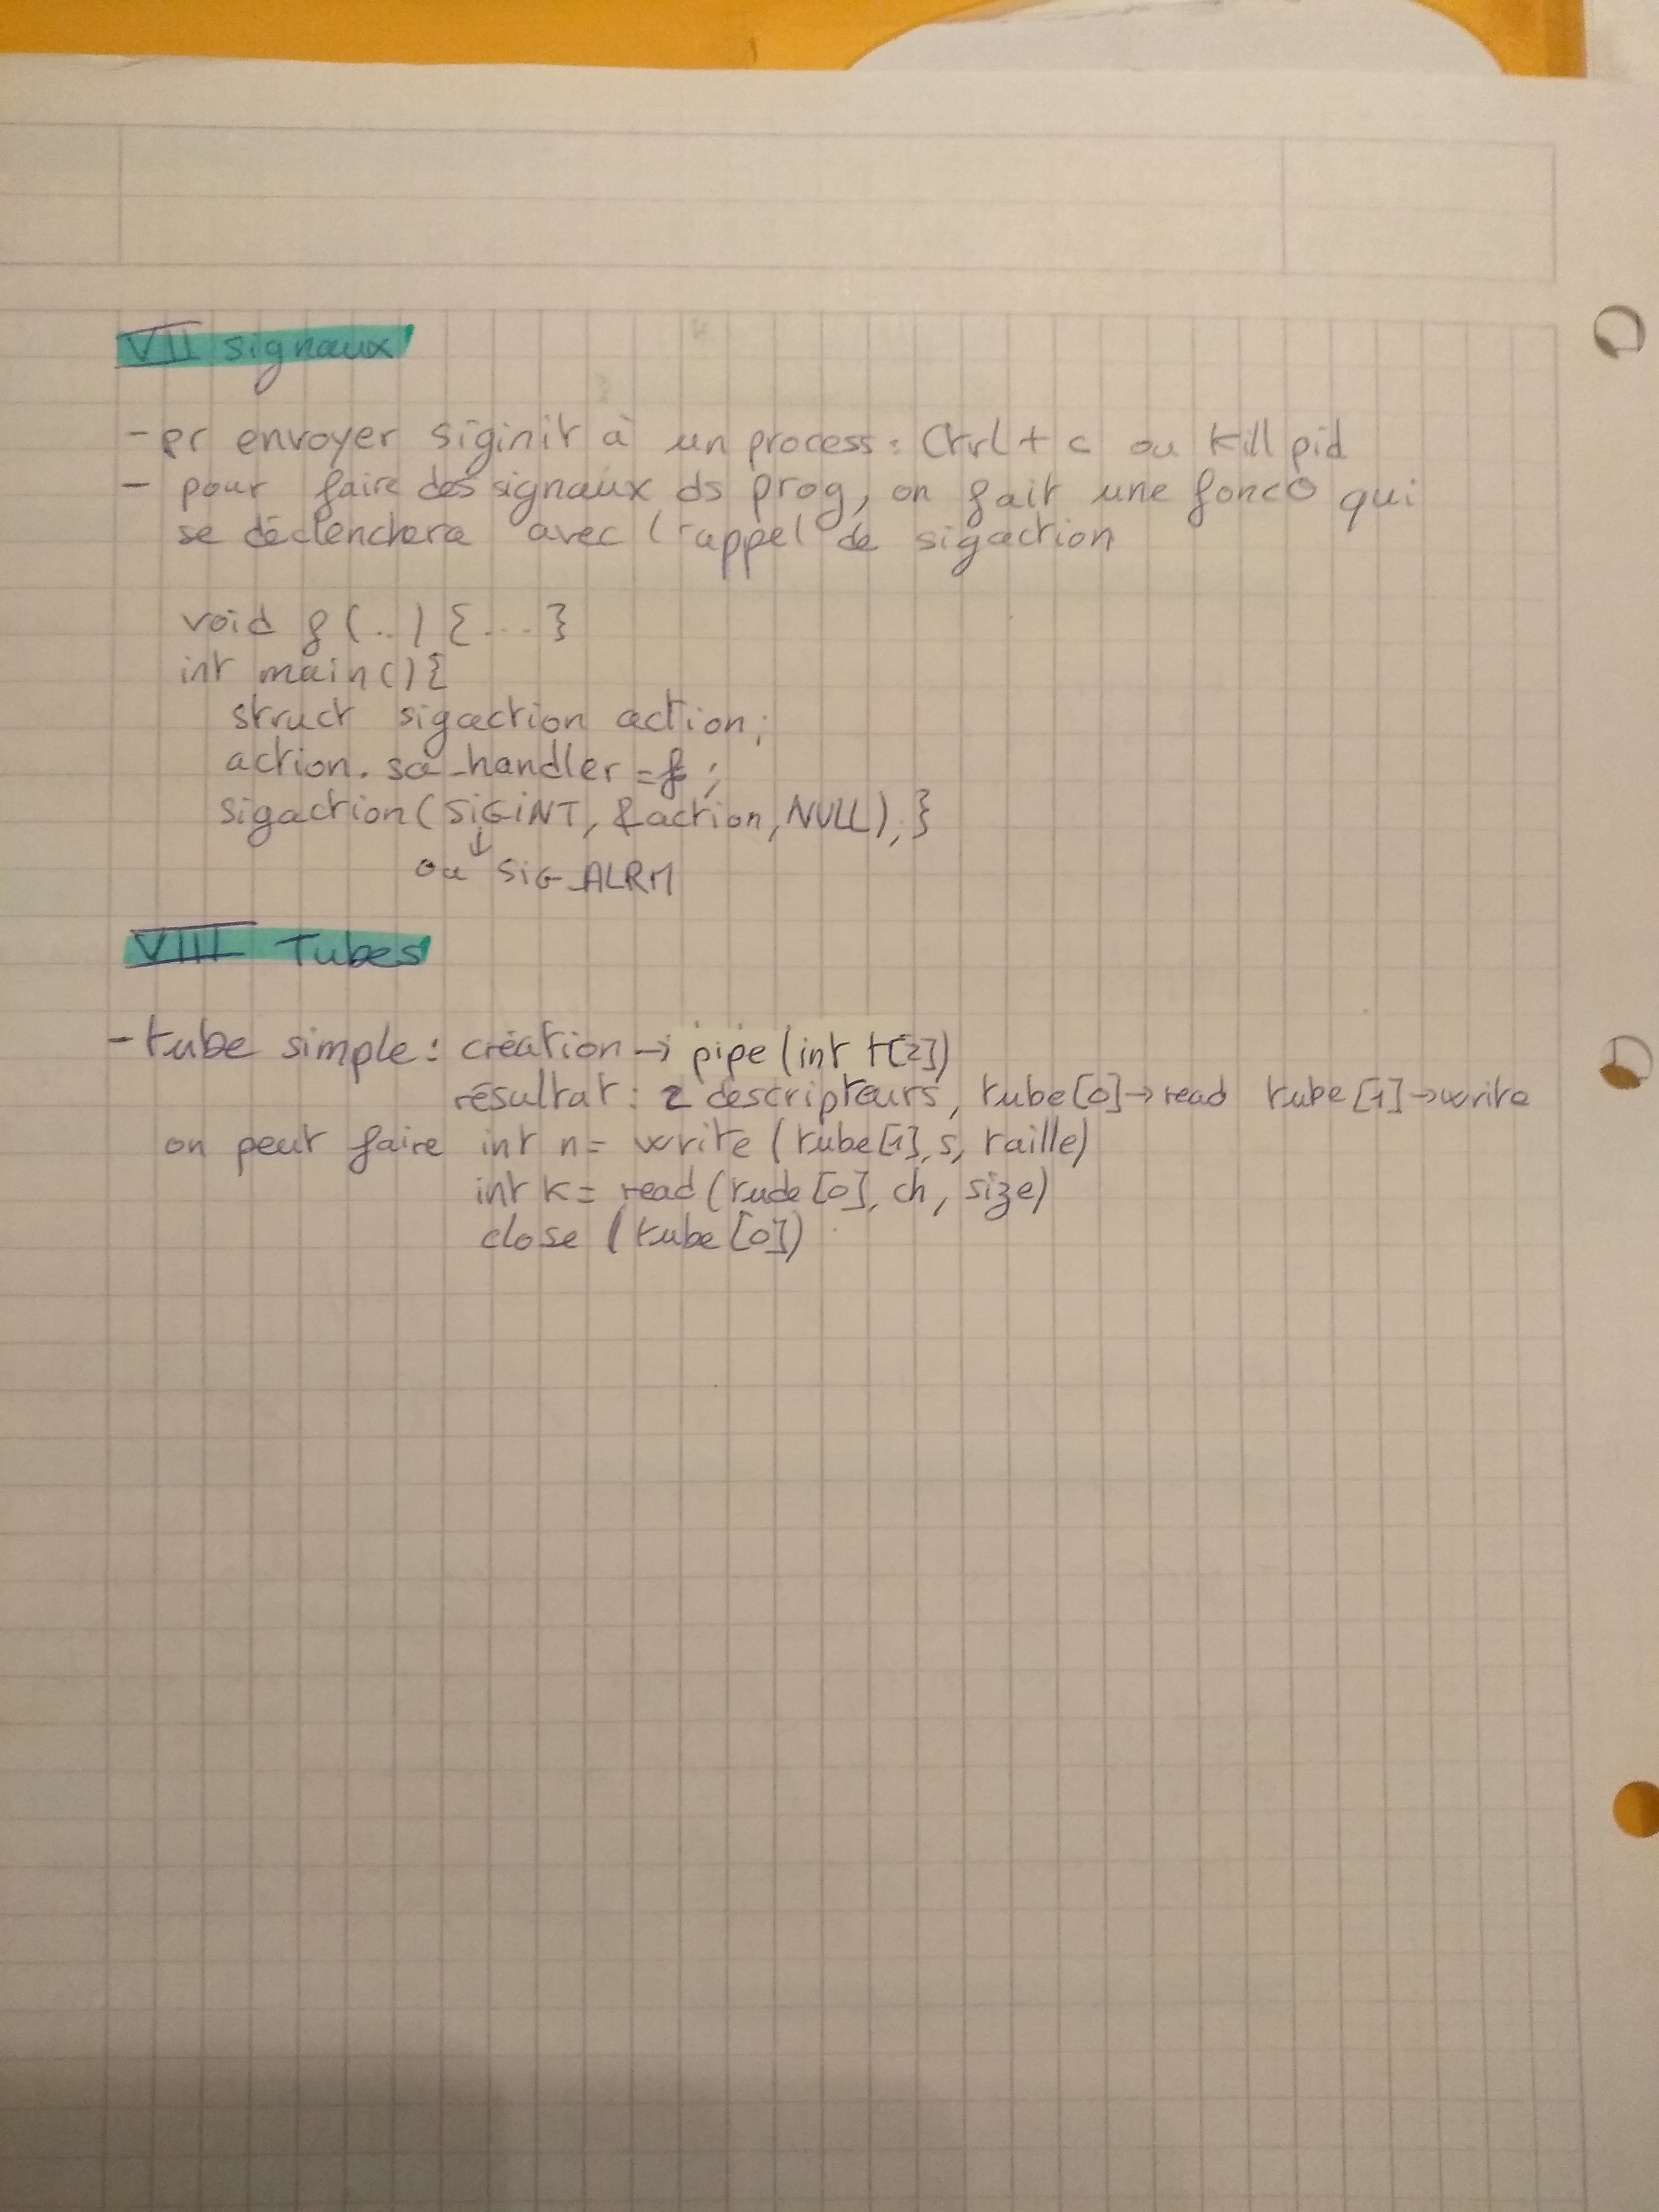 VII signaux
- pr envoyer siginit à un process : Ctrl + c ou Kill pid
- pour faire des signaux ds prog, on fait une foncO qui
se déclenchera avec l'appel de sigaction
void f (..) {....}
int main() {
struct sigaction action;
action. sa_handler = f ;
sigaction (SIGINT, &action, NULL); }
↓
ou SIG_ALRM
VIII Tubes
- tube simple : création → pipe (int t[2])
résultat : 2 descripteurs, tube [0] → read tube [1] → write
on peut faire int n = write (tube [1], s, taille)
int k = read (tude [0], ch, size)
close (tube [0])